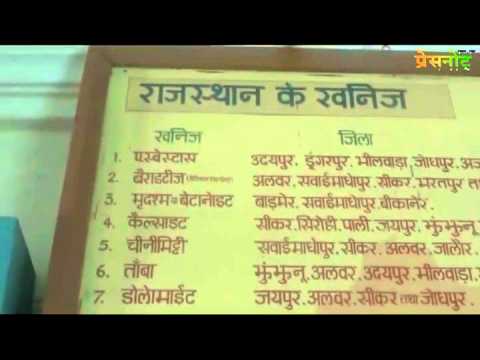 प्रेसनोट
राजस्थान के खनिज
खनिज जिला
1. एस्बेस्टास उदयपुर. डूंगरपुर. भीलवाड़ा. जोधपुर. अज
2. बैराइटीज अलवर. सवाईमाधोपुर. सीकर. भरतपुर त
3. मृदश्म=बेटानोइट बाड़मेर. सवाईमाधोपुर. बीकानेर.
4. कैल्साइट सीकर. सिरोही. पाली. जयपुर. झुंझुनू
5. चीनीमिट्टी सवाईमाधोपुर. सीकर. अलवर. जालौर.
6. ताँबा झुंझुनू. अलवर. उदयपुर. भीलवाड़ा.
7. डोलोमाईट जयपुर. अलवर. सीकर तथा जोधपुर.